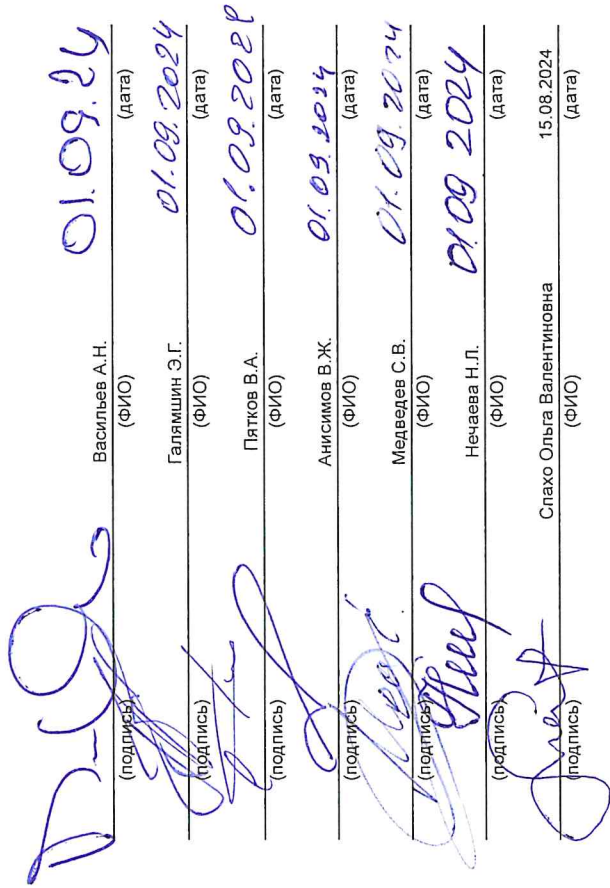 Васильев А.Н. 01.09.24
(подпись) (ФИО) (дата)
Галямшин Э.Г. 01.09.2024
(подпись) (ФИО) (дата)
Пятков В.А. 01.09.202
(подпись) (ФИО) (дата)
Анисимов В.Ж. 01.09.2024
(подпись) (ФИО) (дата)
Медведев С.В. 01.09.2024
(подпись) (ФИО) (дата)
Нечаева Н.Л. 01 09 2024
(подпись) (ФИО) (дата)
Спахо Ольга Валентиновна 15.08.2024
(подпись) (ФИО) (дата)